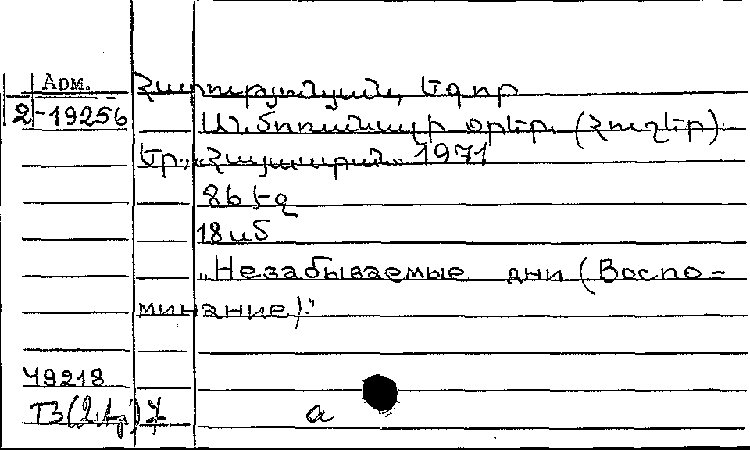 Арм.
2-19256
Հարությունյան, Եգոր
Անմոռանալի օրեր. (Հուշեր).
Եր., „Հայաստան" 1971
86 էջ
18 սմ
„Незабываемые дни (Воспо-
минание)."
49218
а